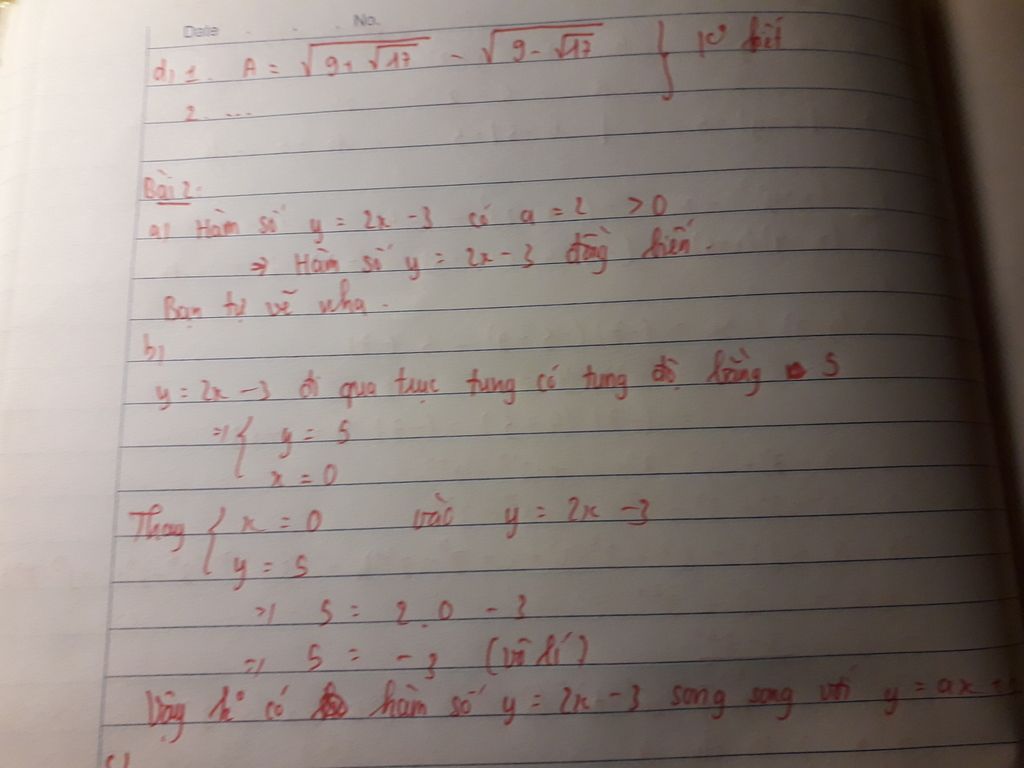 Date No.
d, 1. A = √(9+√17) - √(9-√17) } k° biết
2. ...
Bài 2:
a) Hàm số y = 2x - 3 có a = 2 > 0
⇒ Hàm số y = 2x - 3 đồng biến.
Bạn tự vẽ nha.
b)
y = 2x - 3 đi qua trục tung có tung độ bằng 5
⇒ { y = 5
x = 0
Thay { x = 0 vào y = 2x - 3
y = 5
⇒ 5 = 2.0 - 3
⇒ 5 = -3 (vô lí)
Vậy k° có hàm số y = 2x - 3 song song với y = ax +
c)